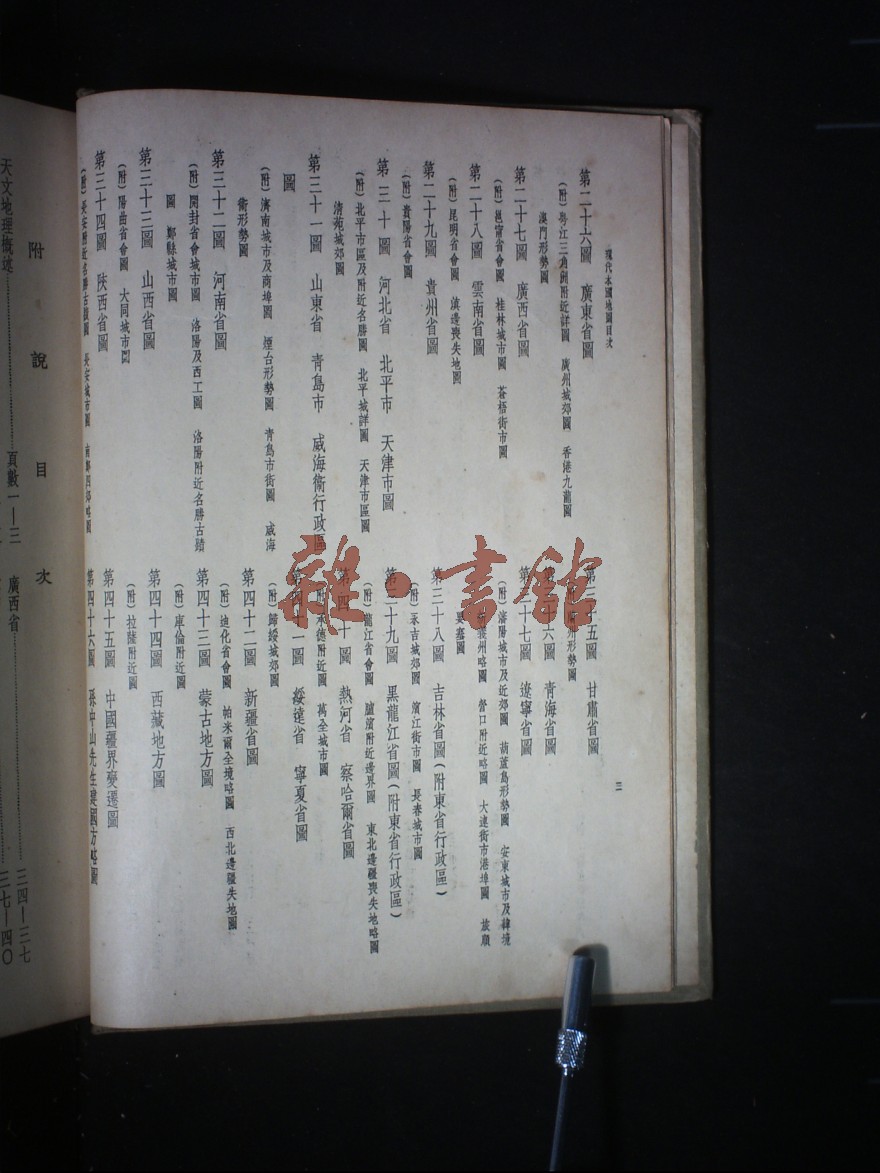 現代本國地圖目次
第二十六圖　廣東省圖
（附）粵江三角洲附近詳圖　廣州城郊圖　香港九龍圖
澳門形勢圖
第二十七圖　廣西省圖
（附）邕甯省會圖　桂林城市圖　蒼梧街市圖
第二十八圖　雲南省圖
（附）昆明省會圖　滇邊喪失地圖
第二十九圖　貴州省圖
（附）貴陽省會圖
第三十圖　河北省　北平市　天津市圖
（附）北平市區及附近名勝圖　北平城詳圖　天津市區圖
清苑城郊圖
第三十一圖　山東省　青島市　威海衞行政區
圖
（附）濟南城市及商埠圖　煙台形勢圖　青島市街圖　威海
衞形勢圖
第三十二圖　河南省圖
（附）開封省會城市圖　洛陽及西工圖　洛陽附近名勝古蹟
圖　鄭縣城市圖
第三十三圖　山西省圖
（附）陽曲省會圖　大同城市圖
第三十四圖　陝西省圖
（附）長安附近名勝古蹟圖　長安城市圖　南鄭四郊略圖
第三十五圖　甘肅省圖
形勢圖
第三十六圖　青海省圖
第三十七圖　遼寧省圖
（附）瀋陽城市及近郊圖　葫蘆島形勢圖　安東城市及韓境
新義州略圖　營口附近略圖　大連街市港埠圖　旅順
要塞圖
第三十八圖　吉林省圖（附東省行政區）
（附）永吉城郊圖　濱江街市圖　長春城市圖
第三十九圖　黑龍江省圖（附東省行政區）
（附）龍江省會圖　臚濱附近邊界圖　東北邊疆喪失地略圖
第四十圖　熱河省　察哈爾省圖
（附）承德附近圖　萬全城市圖
第四十一圖　綏遠省　寧夏省圖
（附）歸綏城郊圖
第四十二圖　新疆省圖
（附）迪化省會圖　帕米爾全境略圖　西北邊疆失地圖
第四十三圖　蒙古地方圖
（附）庫倫附近圖
第四十四圖　西藏地方圖
（附）拉薩附近圖
第四十五圖　中國疆界變遷圖
第四十六圖　孫中山先生建國方略圖
三
附說目次
天文地理概述……頁數一—三
廣西省……三四—三七
三七—四〇
雜·書館